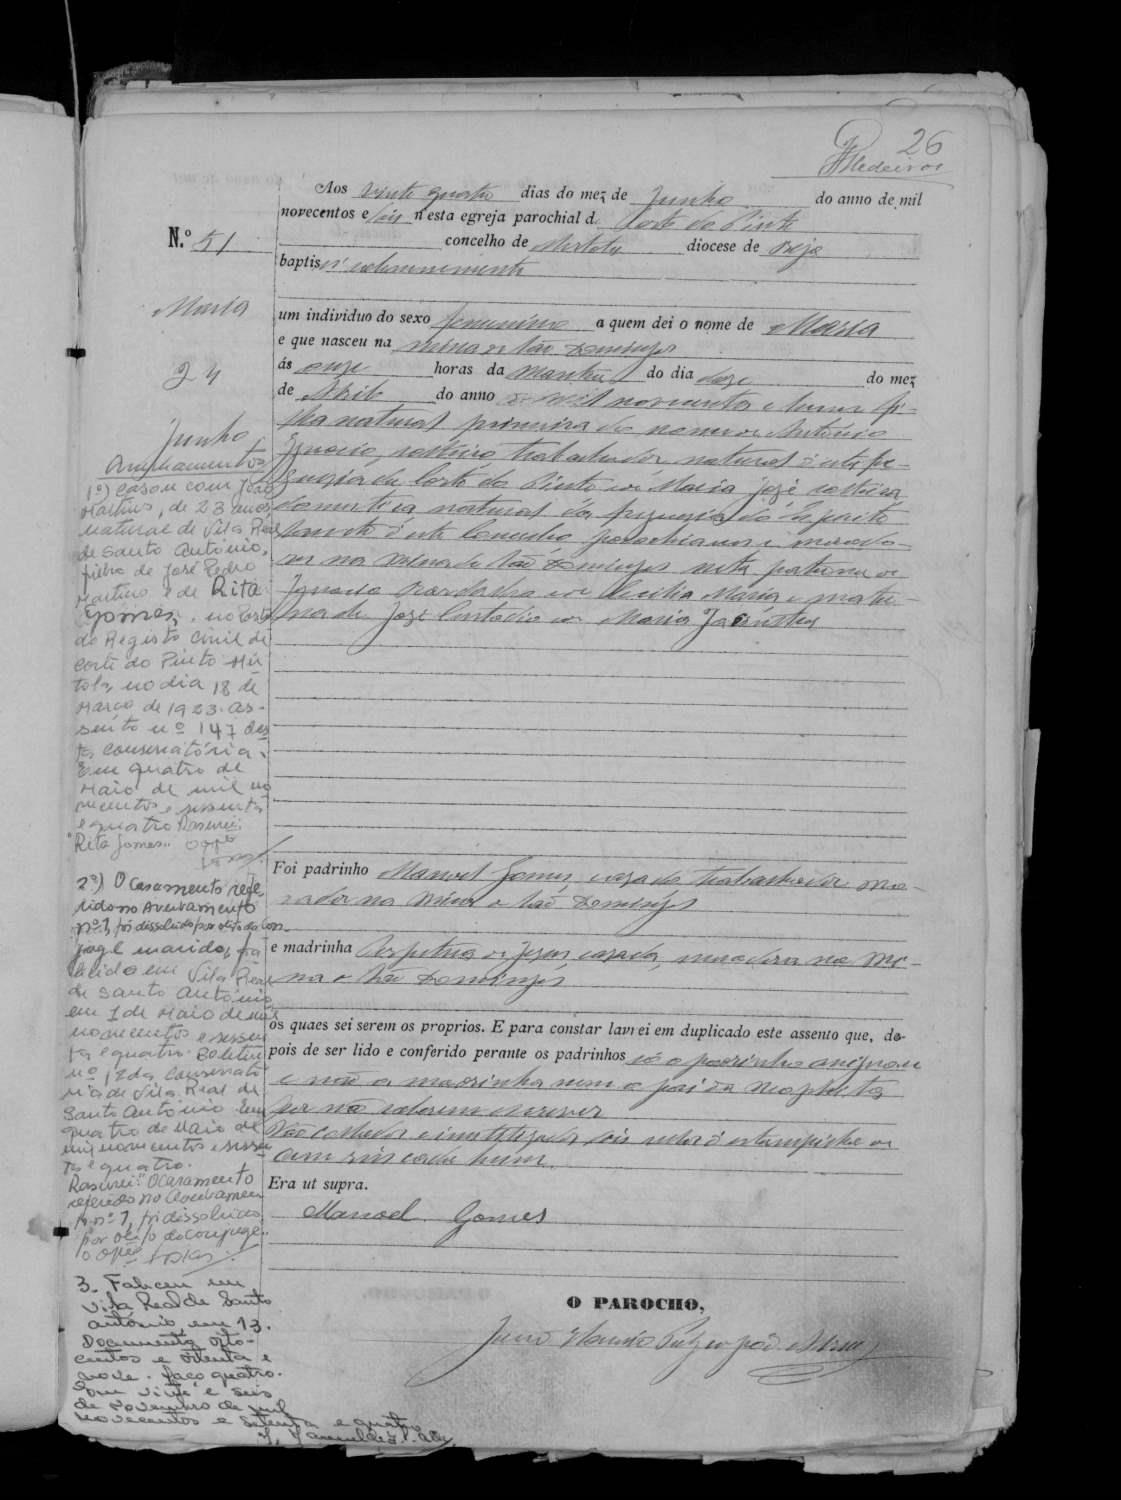 26
Medeiros
Aos vinte quatro dias do mez de Junho do anno de mil
novecentos e seis n'esta egreja parochial d. Corte do Pinto
concelho de Mertola diocese de Beja
baptisei solemnemente
N.º 51
Maria
24
Junho
um individuo do sexo femenino a quem dei o nome de Maria
e que nasceu na Mina de São Domingos
ás onze horas da manhã do dia doze do mez
de Abril do anno de mil novecentos e hum fi-
lha natural primeira do nome de António
Ignacio, solteiro trabalhador natural d'esta fre-
guezia da Corte do Pinto e de Maria José solteira
domestica natural da freguezia do Espirito
Santo d'este Concelho parochianos e morado-
res na Mina de São Domingos neta paterna de
Ignacio e de Cecilia Maria e mater-
na de José Custodio e de Maria Jacintha
Foi padrinho Manoel Gomes, casado trabalhador mo-
rador na Mina de São Domingos
e madrinha Perpetua de Jesus, casada, moradora na Mi-
na de São Domingos
os quaes sei serem os proprios. E para constar lavrei em duplicado este assento que, de-
pois de ser lido e conferido perante os padrinhos só o padrinho assignou
e não a madrinha nem o pai da neophita
por não saberem escrever
Vão collados e inutilizados seis sellos d'estampilha de
cem reis cada hum.
Era ut supra.
Manoel Gomes
O PAROCHO,
Averbamentos
1º) Casou com João
Martins, de 23 anos,
natural de Vila Real
de Santo António,
filho de José Pedro
Martins e de Rita
Gomes, no Posto
do Registo Civil de
Corte do Pinto Mér-
tola, no dia 18 de
Março de 1923. As-
sento nº 147 des-
ta Conservatória.
Em quatro de
Maio de mil no
vecentos e sessenta
e quatro. Rasurei:
"Rita Gomes".
2º) O casamento refe-
rido no averbamento
nº 1, foi dissolvido por obito do con-
juge marido, fa-
lecido em Vila Real
de Santo António
em 1 de Maio de mil
novecentos e sessen-
ta e quatro. Boletim
nº 12 da Conservató-
ria de Vila Real de
Santo António. Em
quatro de Maio de
mil novecentos e sessen-
ta e quatro.
Rasurei: "O casamento
referido no averbamen-
to nº 1, foi dissolvido
por obito do conjuge".
3. Faleceu em
Vila Real de Santo
António, em 13.
Documento, oito-
centos e oitenta e
nove. Maço quatro.
Em vinte e seis
de Novembro de mil
novecentos e setenta e quatro